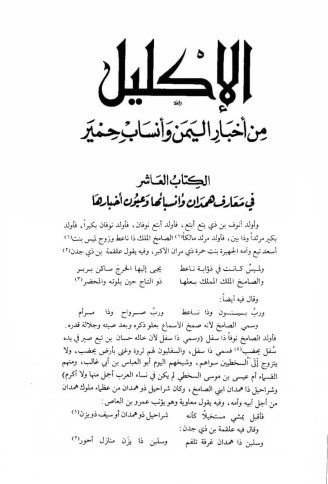 الإكليل
من أخبار اليمن وأنساب حمير
الكتاب العاشر
في معارف همدان وأنسابها وعيون أخبارها
وأولد أنوف بن ذي بتع أبتع، فأولد أبتع نوفان، فأولد نوفان بكيراً، فأولد
بكير مرثداً وذا بين، فأولد مرثد مالكاً(١) الصامخ الملك ذا ناعط وزوج لميس بنت(١)
أسعد تبع وأمه الجهيرة بنت حمرة ذي مران الاكبر، وفيه يقول علقمة بن ذي جدن(٢)
ولميس كانت في ذؤابة ناعط يجبى إليها الخرج ساكن بربر
والصامخ الملك المملك بعلها ذو التاج حين يلوثه والمحضر(٣)
وقال فيه أيضاً:
وربّ بينون وذا ناعط وربّ صرواح وذا مرام
وسمي الصامخ لأنه صمخ الأسماع بعلو ذكره وبعد صيته وجلالة قدره.
فأولد الصامخ نوفاً ذا سفل، (وسمي ذا سفل لأن خاله حسان بن تبع صير في يده
سُفل يحضب)(٥) فسمي ذا سفل، والسفليون لهم ثروة وغنى بأرض يحضب، ولا
يتزوج إلى السخطيين سواهم، وشيخهم اليوم أبو العباس بن أبي غالب، ومنهم
القسماء أم عيسى بن موسى السخطي لم يكن في نساء العرب أجمل منها ولا أكرم)
وشراحيل ذا همدان ابني الصامخ، وكان شراحيل ذو همدان من عظماء ملوك همدان
من أجل أبيه وأمه، وفيه يقول معاوية وهو يؤنب عمرو بن العاص:
فأقبل يمشي مستخيلاً كأنه شراحيل ذو همدان أو سيف ذويزن(١)
وقال فيه علقمة بن ذي جدن:
وسلبن ذا همدان غرفة تلقم وسلبن ذا يزن منازل أحور(٢)